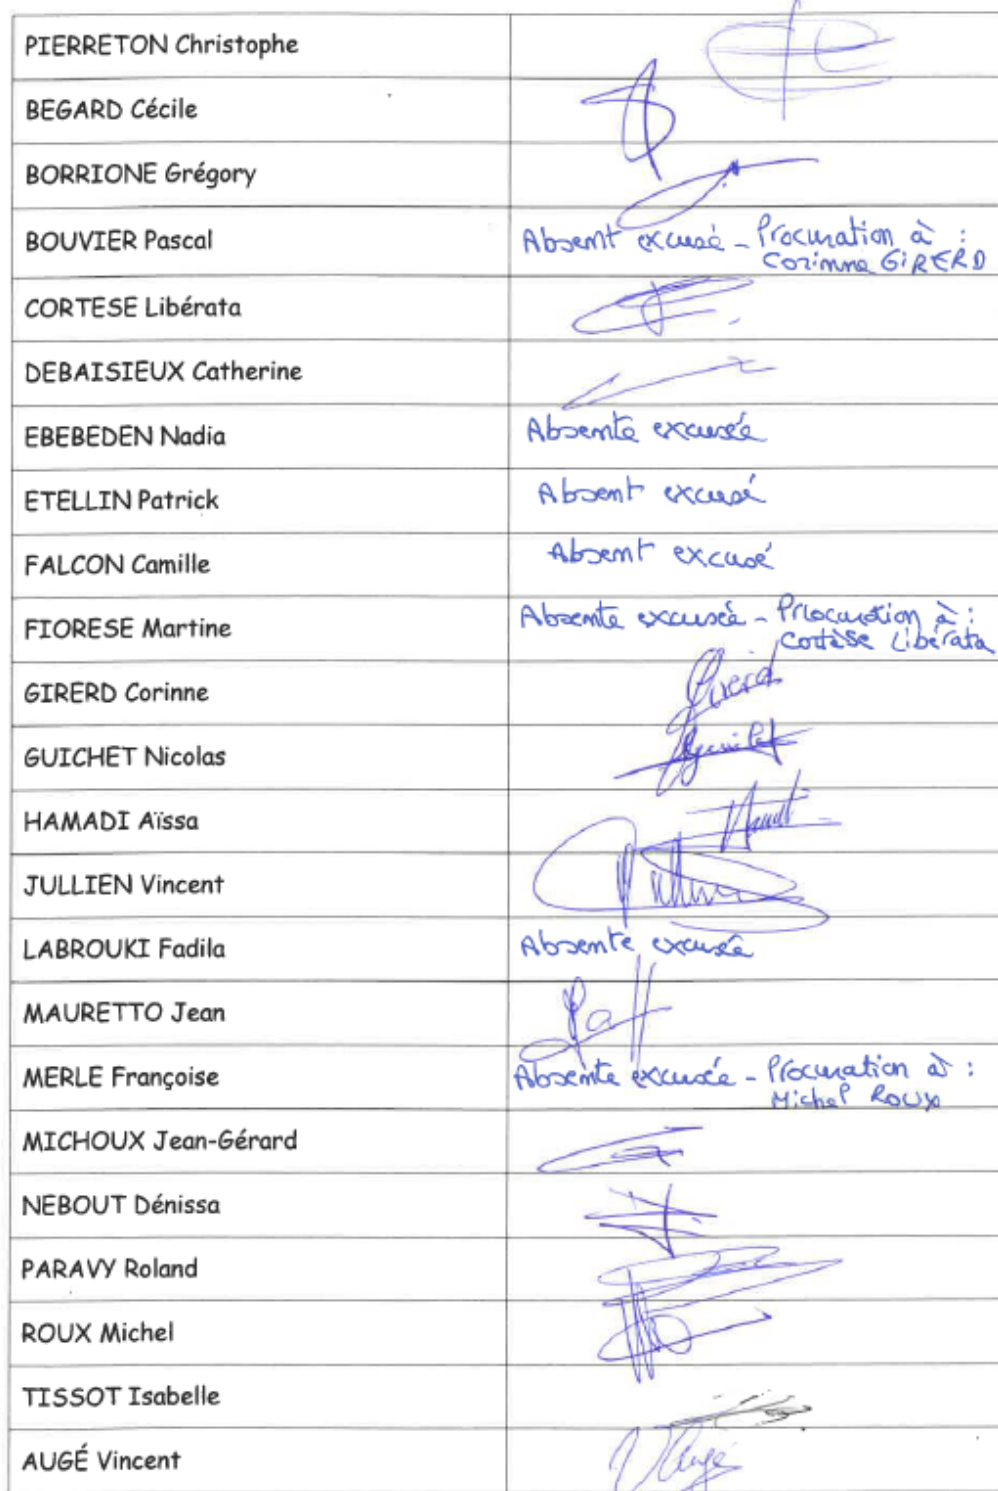 PIERRETON Christophe
BEGARD Cécile
BORRIONE Grégory
BOUVIER Pascal Absent excusé - Procuration à :
Corinne GIRERD
CORTESE Libérata
DEBAISIEUX Catherine
EBEBEDEN Nadia Absente excusée
ETELLIN Patrick Absent excusé
FALCON Camille Absent excusé
FIORESE Martine Absente excusée - Procuration à :
Cortèse Libérata
GIRERD Corinne Girerd
GUICHET Nicolas Guichet
HAMADI Aïssa
JULLIEN Vincent
LABROUKI Fadila Absente excusée
MAURETTO Jean
MERLE Françoise Absente excusée - Procuration à :
Michel ROUX
MICHOUX Jean-Gérard
NEBOUT Dénissa
PARAVY Roland
ROUX Michel
TISSOT Isabelle
AUGÉ Vincent V Augé